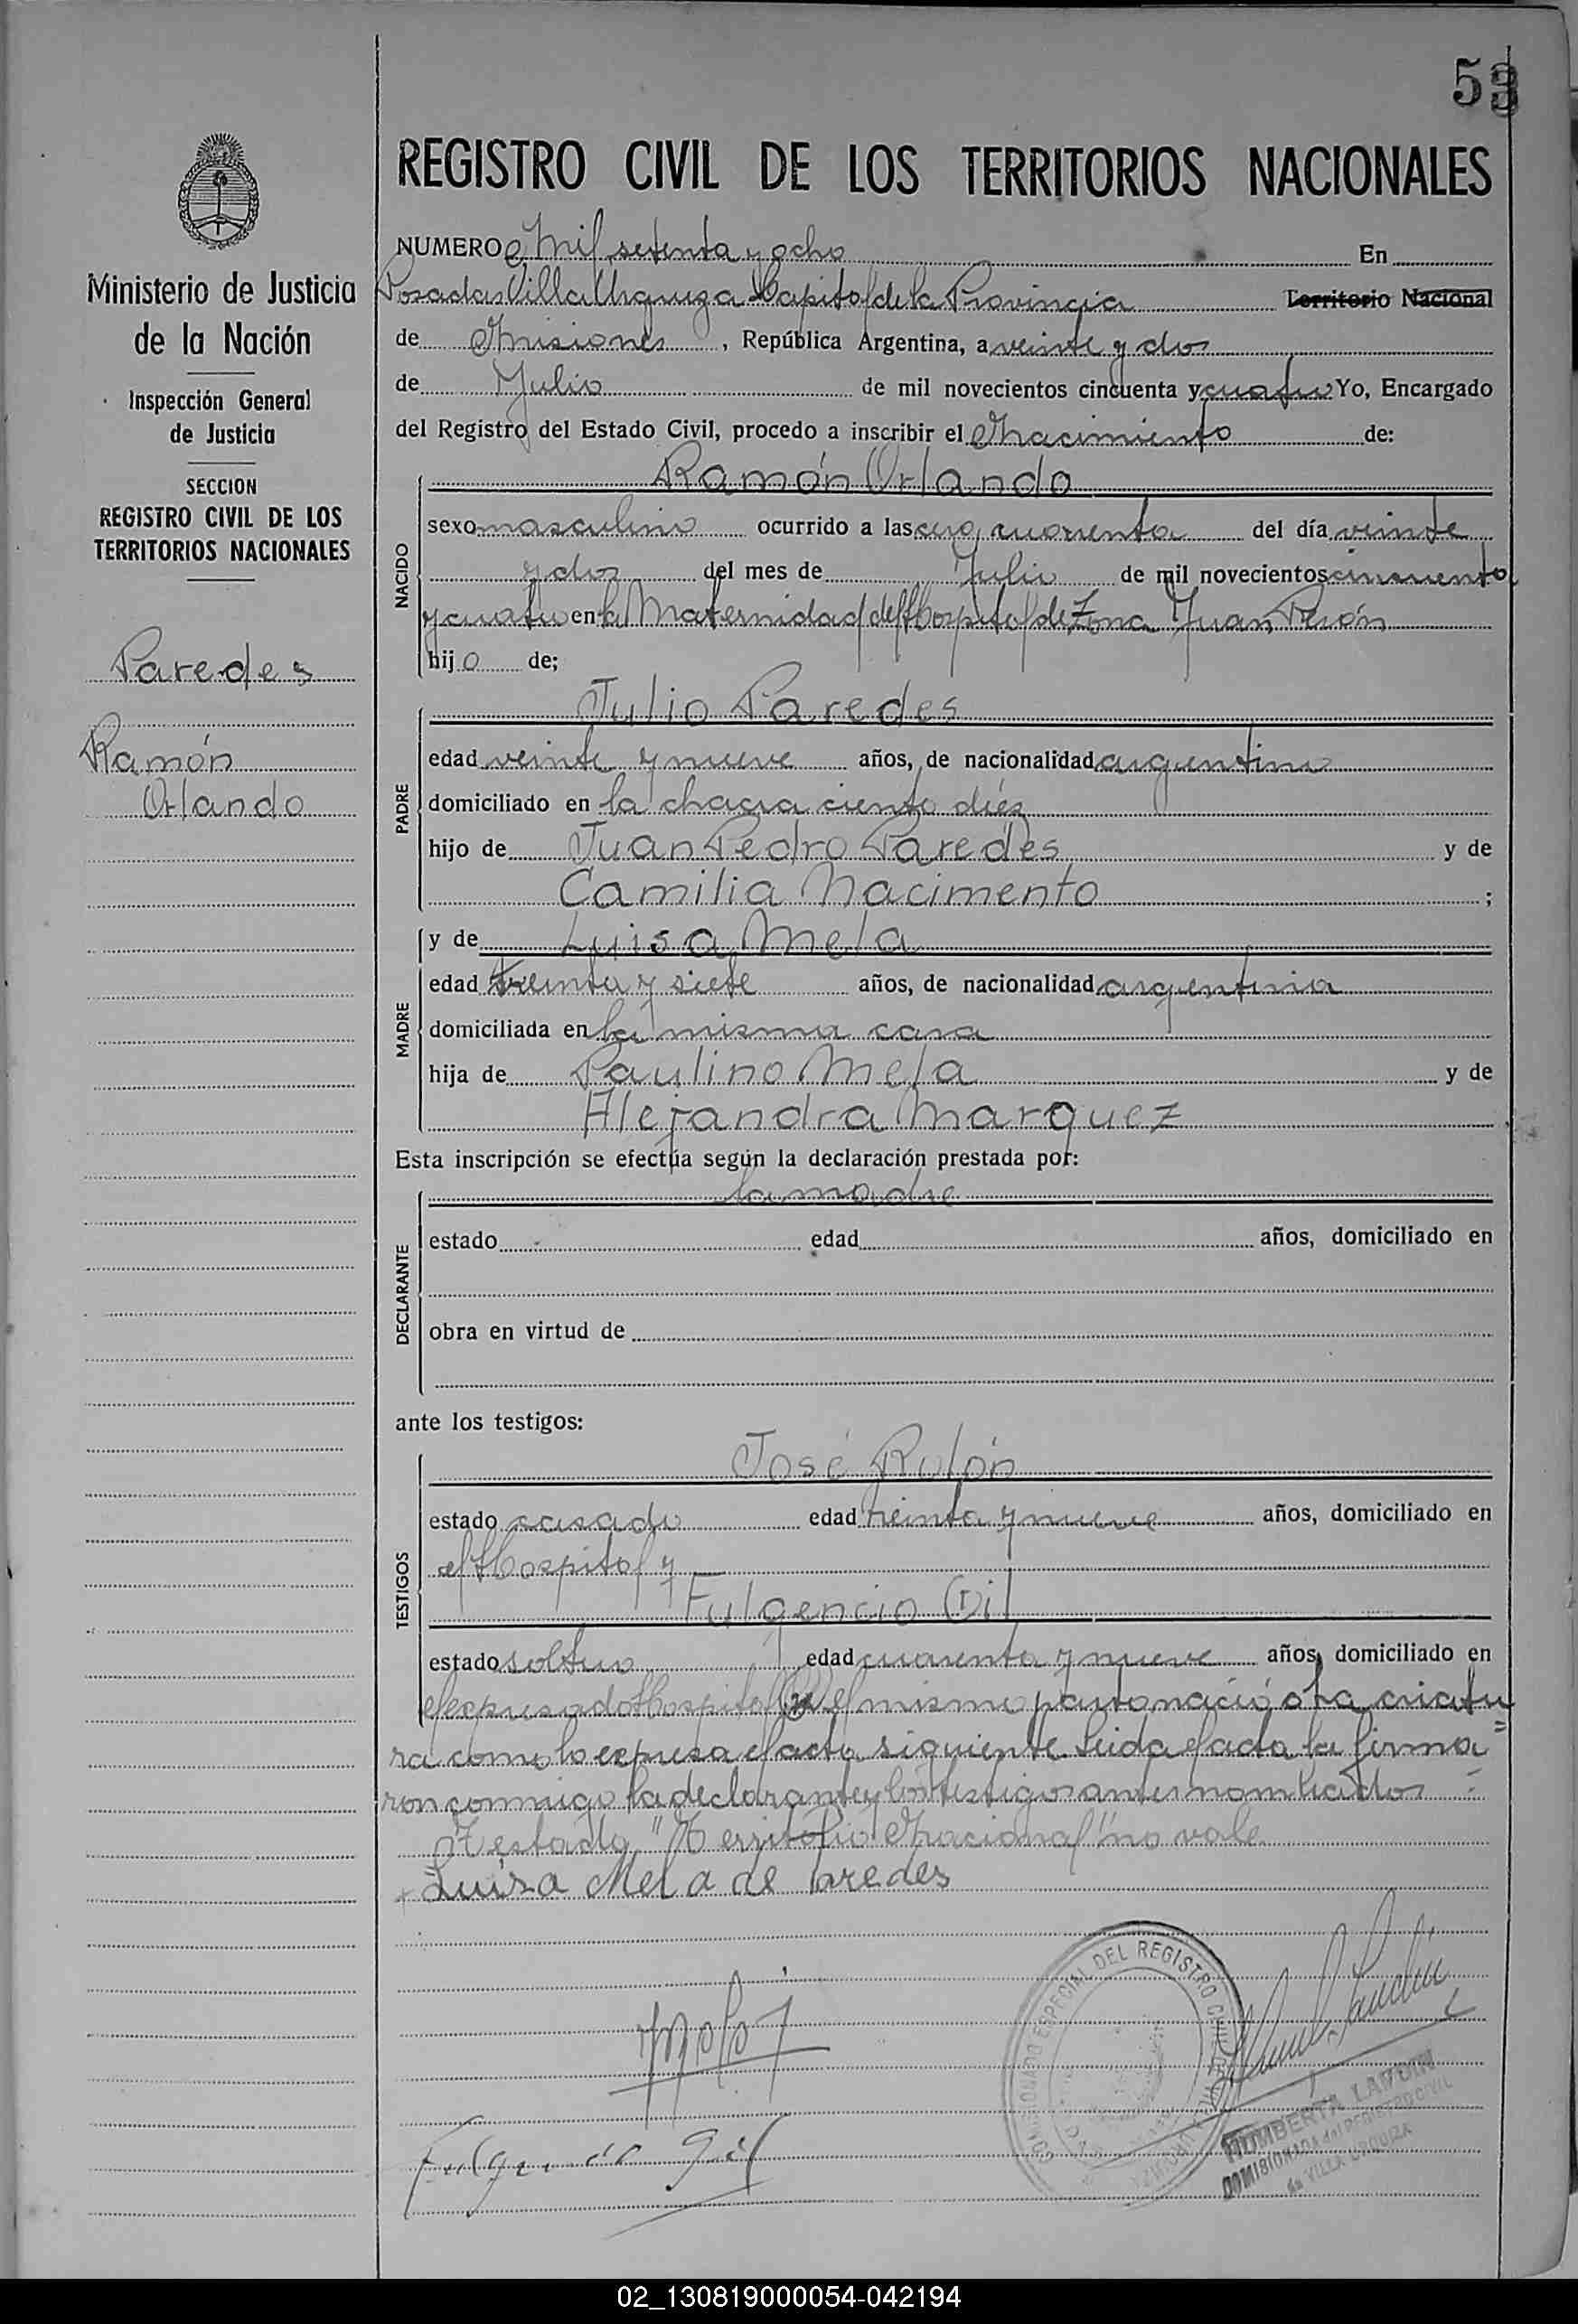 53
REGISTRO CIVIL DE LOS TERRITORIOS NACIONALES
Ministerio de Justicia
de la Nación
Inspección General
de Justicia
SECCION
REGISTRO CIVIL DE LOS
TERRITORIOS NACIONALES
Paredes
Ramón
Orlando
NUMERO Mil setenta y ocho En
Posadas Villa Urquiza Capital de la Provincia Territorio Nacional
de Misiones, República Argentina, a veinte y dos
de Julio de mil novecientos cincuenta y cuatro Yo, Encargado
del Registro del Estado Civil, procedo a inscribir el Nacimiento de:
NACIDO
Ramón Orlando
sexo masculino ocurrido a las cero, cuarenta del día veinte
y dos del mes de Julio de mil novecientos cincuenta
y cuatro en la Maternidad del Hospital de Zona Juan Perón
hijo de;
PADRE
Julio Paredes
edad veinte y nueve años, de nacionalidad argentino
domiciliado en la chacra ciento diéz
hijo de Juan Pedro Paredes y de
Camilia Nacimento ;
MADRE
y de Luisa Mela
edad treinta y siete años, de nacionalidad argentina
domiciliada en la misma casa
hija de Paulino Mela y de
Alejandra Marquez
Esta inscripción se efectúa según la declaración prestada por:
DECLARANTE
la madre
estado edad años, domiciliado en
obra en virtud de
ante los testigos:
TESTIGOS
José Rolón
estado casado edad treinta y nueve años, domiciliado en
el Hospital y
Fulgencio Gil
estado soltero edad cuarenta y nueve años, domiciliado en
el expresado Hospital el mismo parto nació otra criatu
ra como lo expresa el acta siguiente. Leida el acta la firma
ron conmigo la declarante y los testigos antes nombrados =
Testado "Territorio Nacional" no vale
Luisa Mela de Paredes
Fulgencio Gil
COMISIONADO ESPECIAL DEL REGISTRO CIVIL
HUMBERTA LANDIN
COMISIONADA del REGISTRO CIVIL
de VILLA URQUIZA
02_130819000054-042194